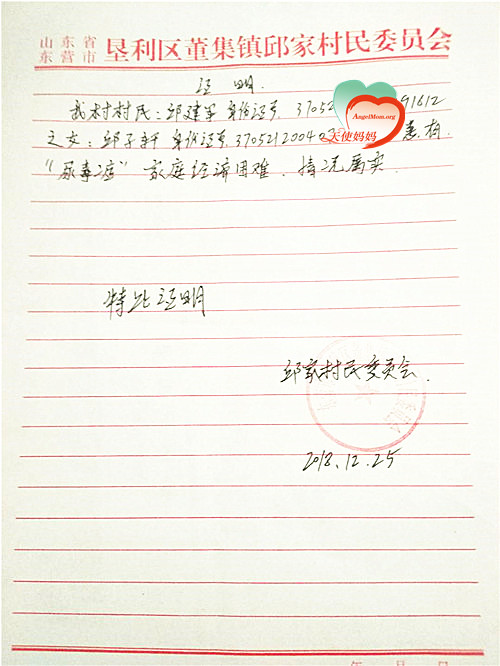 山东省
东营市 垦利区董集镇邱家村民委员会
证 明
我村村民：邱建军 身份证号. 37052 91612
AngelMom.org
天使妈妈
之女：邱子轩 身份证号. 3705212004 患有
"尿毒症" 家庭经济困难. 情况属实.
特此证明
邱家村民委员会.
2018.12.25
年 月 日